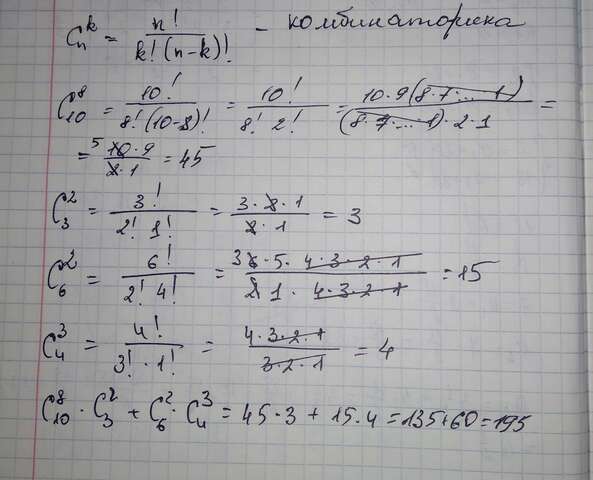 C_n^k = n! / k!(n-k)! - комбинаторика
C_10^8 = 10! / 8!(10-8)! = 10! / 8! 2! = 10·9(8·7...·1) / (8·7...·1)·2·1 =
= 5 10·9 / 2·1 = 45
C_3^2 = 3! / 2! 1! = 3·2·1 / 2·1 = 3
C_6^2 = 6! / 2! 4! = 3 6·5·4·3·2·1 / 2 1·4·3·2·1 = 15
C_4^3 = 4! / 3!·1! = 4·3·2·1 / 3·2·1 = 4
C_10^8 · C_3^2 + C_6^2 · C_4^3 = 45·3 + 15·4 = 135+60 = 195